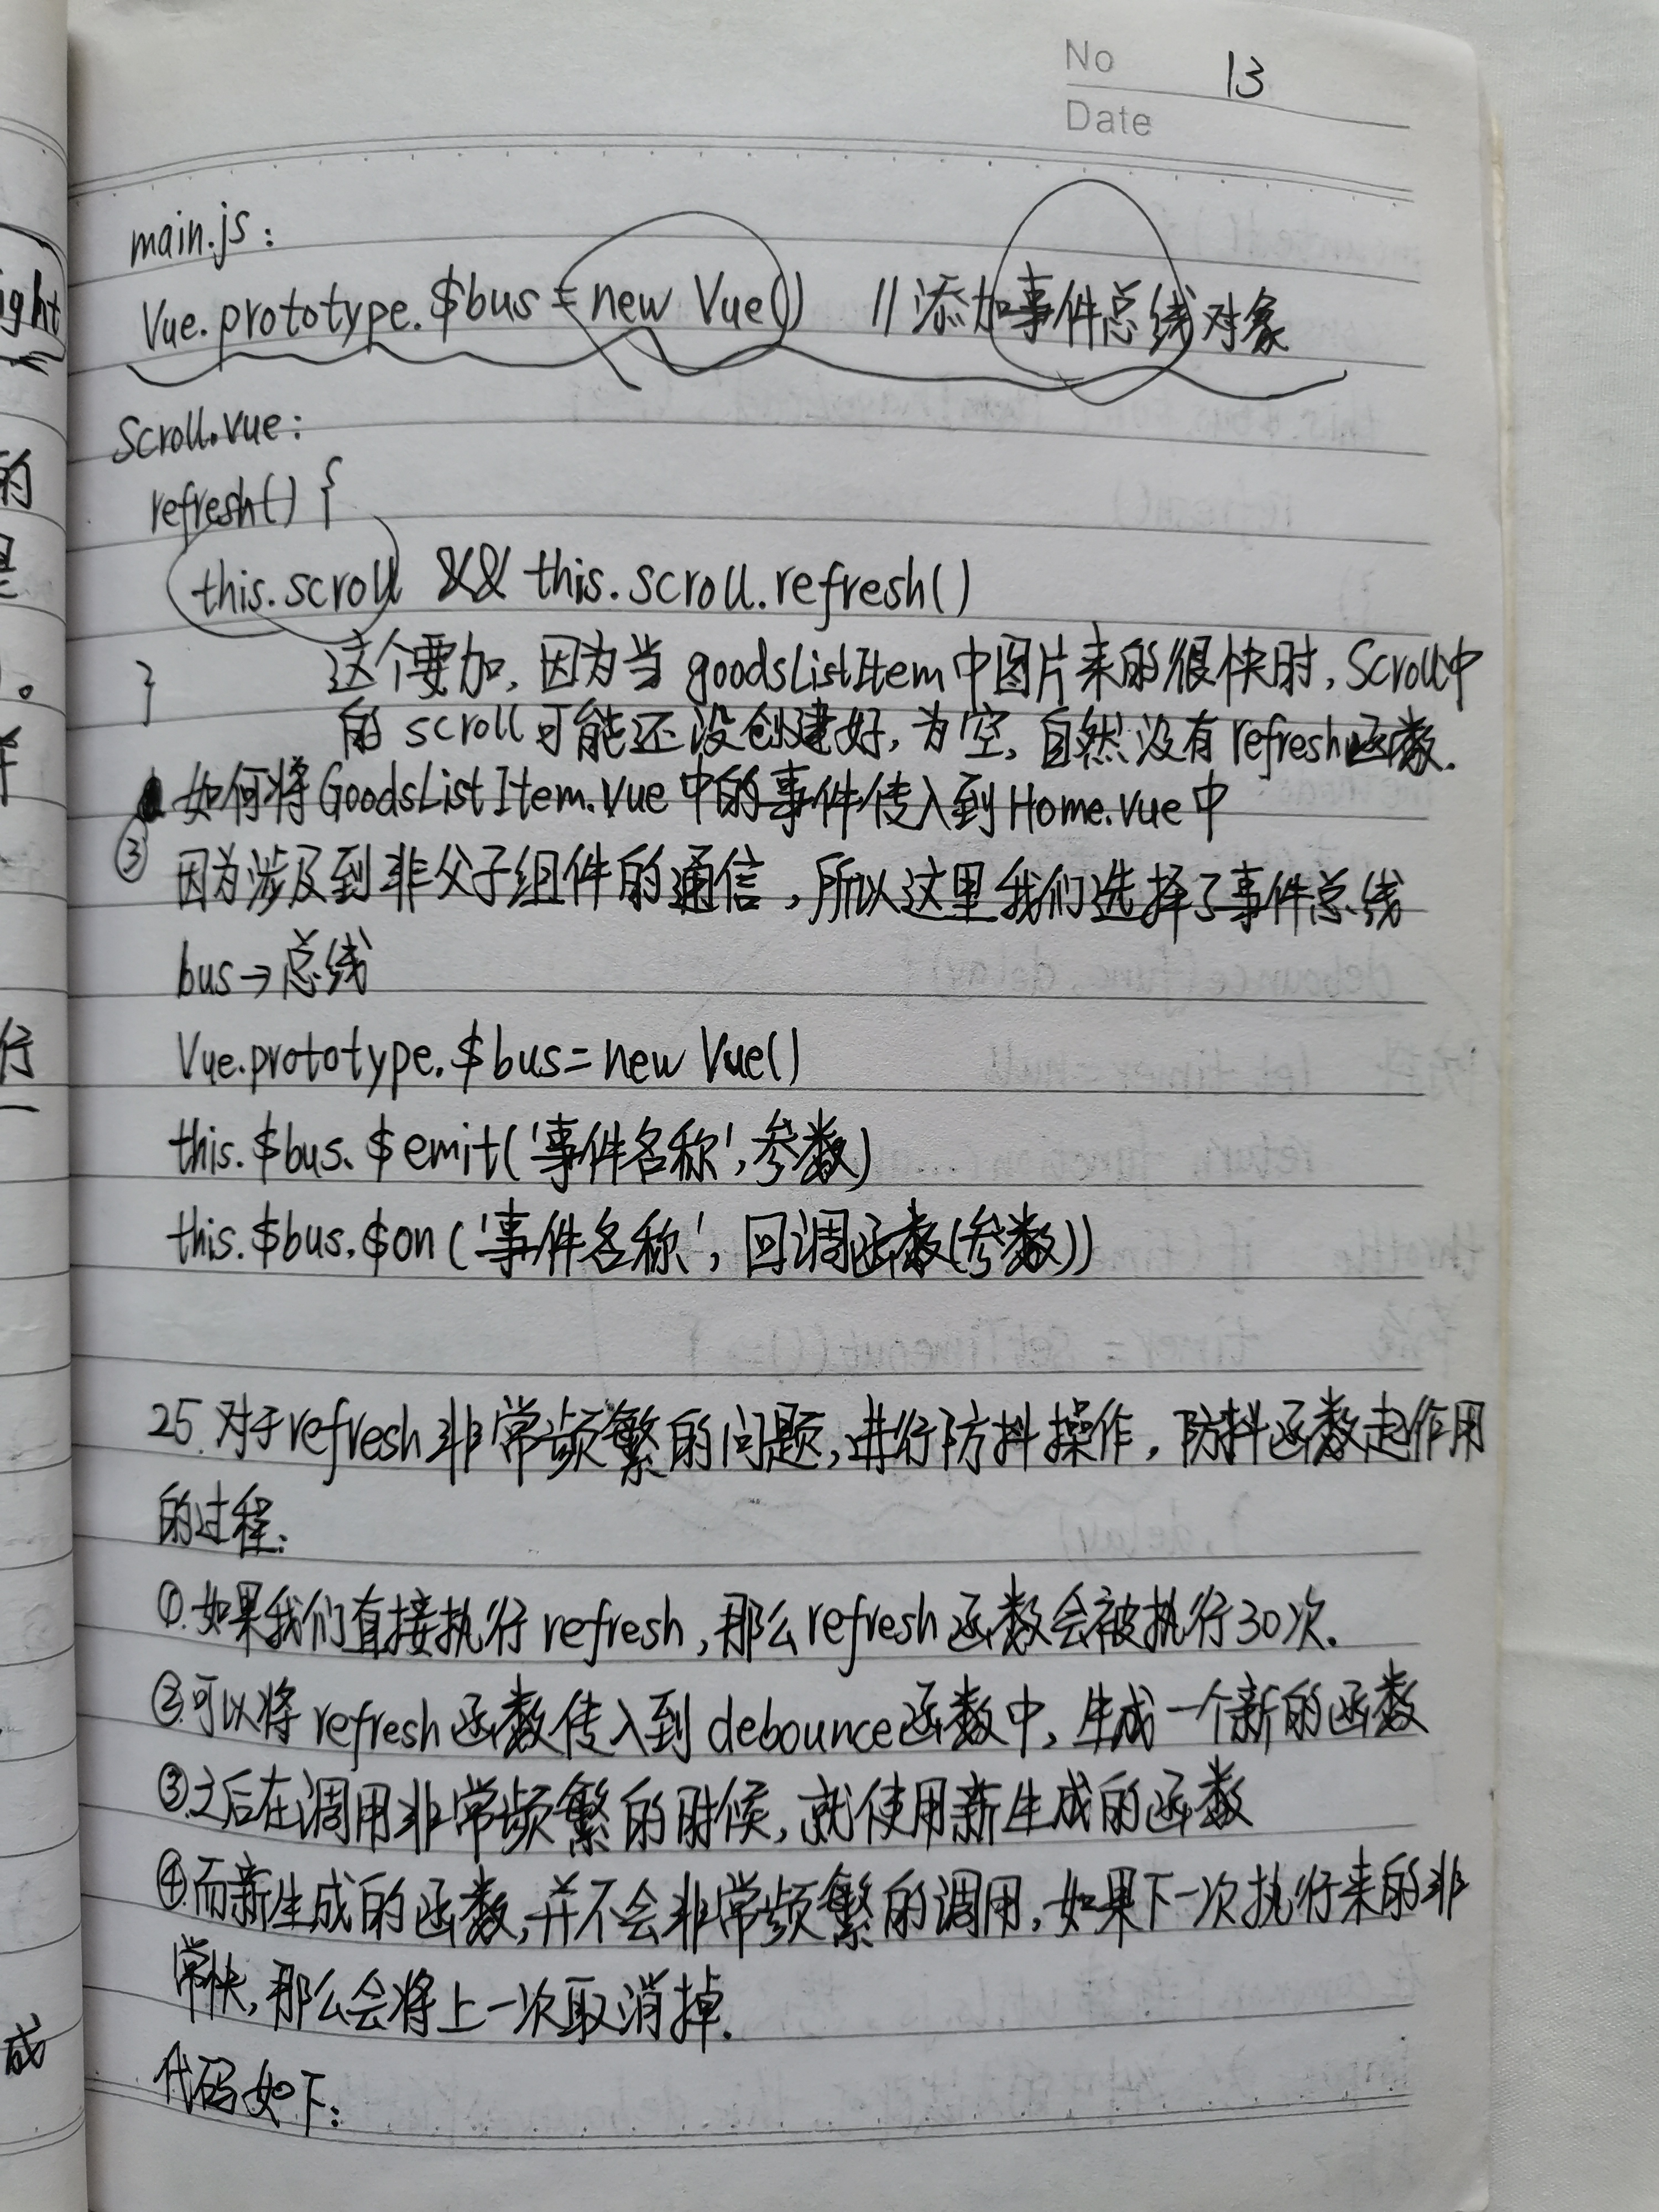 No 13
Date
main.js:
Vue.prototype.$bus = new Vue() //添加事件总线对象
Scroll.vue:
refresh() {
this.scroll && this.scroll.refresh()
这个要加,因为当goodsListItem中图片来的很快时,Scroll中
}
的scroll可能还没创建好,为空,自然没有refresh函数.
如何将GoodsListItem.vue中的事件传入到Home.vue中
③
因为涉及到非父子组件的通信,所以这里我们选择了事件总线
bus→总线
Vue.prototype.$bus=new Vue()
this.$bus.$emit('事件名称',参数)
this.$bus.$on('事件名称',回调函数(参数))
25.对于refresh非常频繁的问题,进行防抖操作,防抖函数起作用
的过程:
①.如果我们直接执行refresh,那么refresh函数会被执行30次.
②.可以将refresh函数传入到debounce函数中,生成一个新的函数
③.之后在调用非常频繁的时候,就使用新生成的函数
④.而新生成的函数,并不会非常频繁的调用,如果下一次执行来的非
常快,那么会将上一次取消掉.
代码如下:
ight
的
是
。
行
成